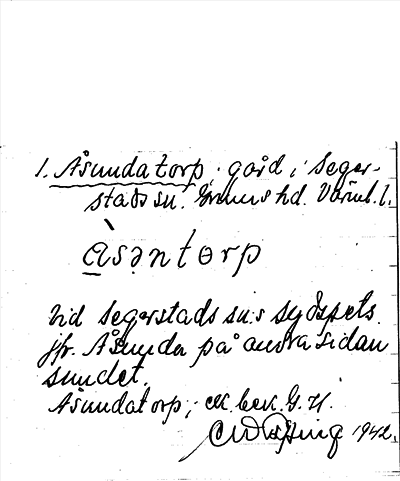 1. Åsundatorp, gård i Seger-
stads sn. Grums hd. Värml. l.
àsəntorp
Vid Segerstads sn:s sydspets.
jfr. Åsunda på andra sidan
sundet.
Åsundatorp, ek. bek. G. H.
1942.